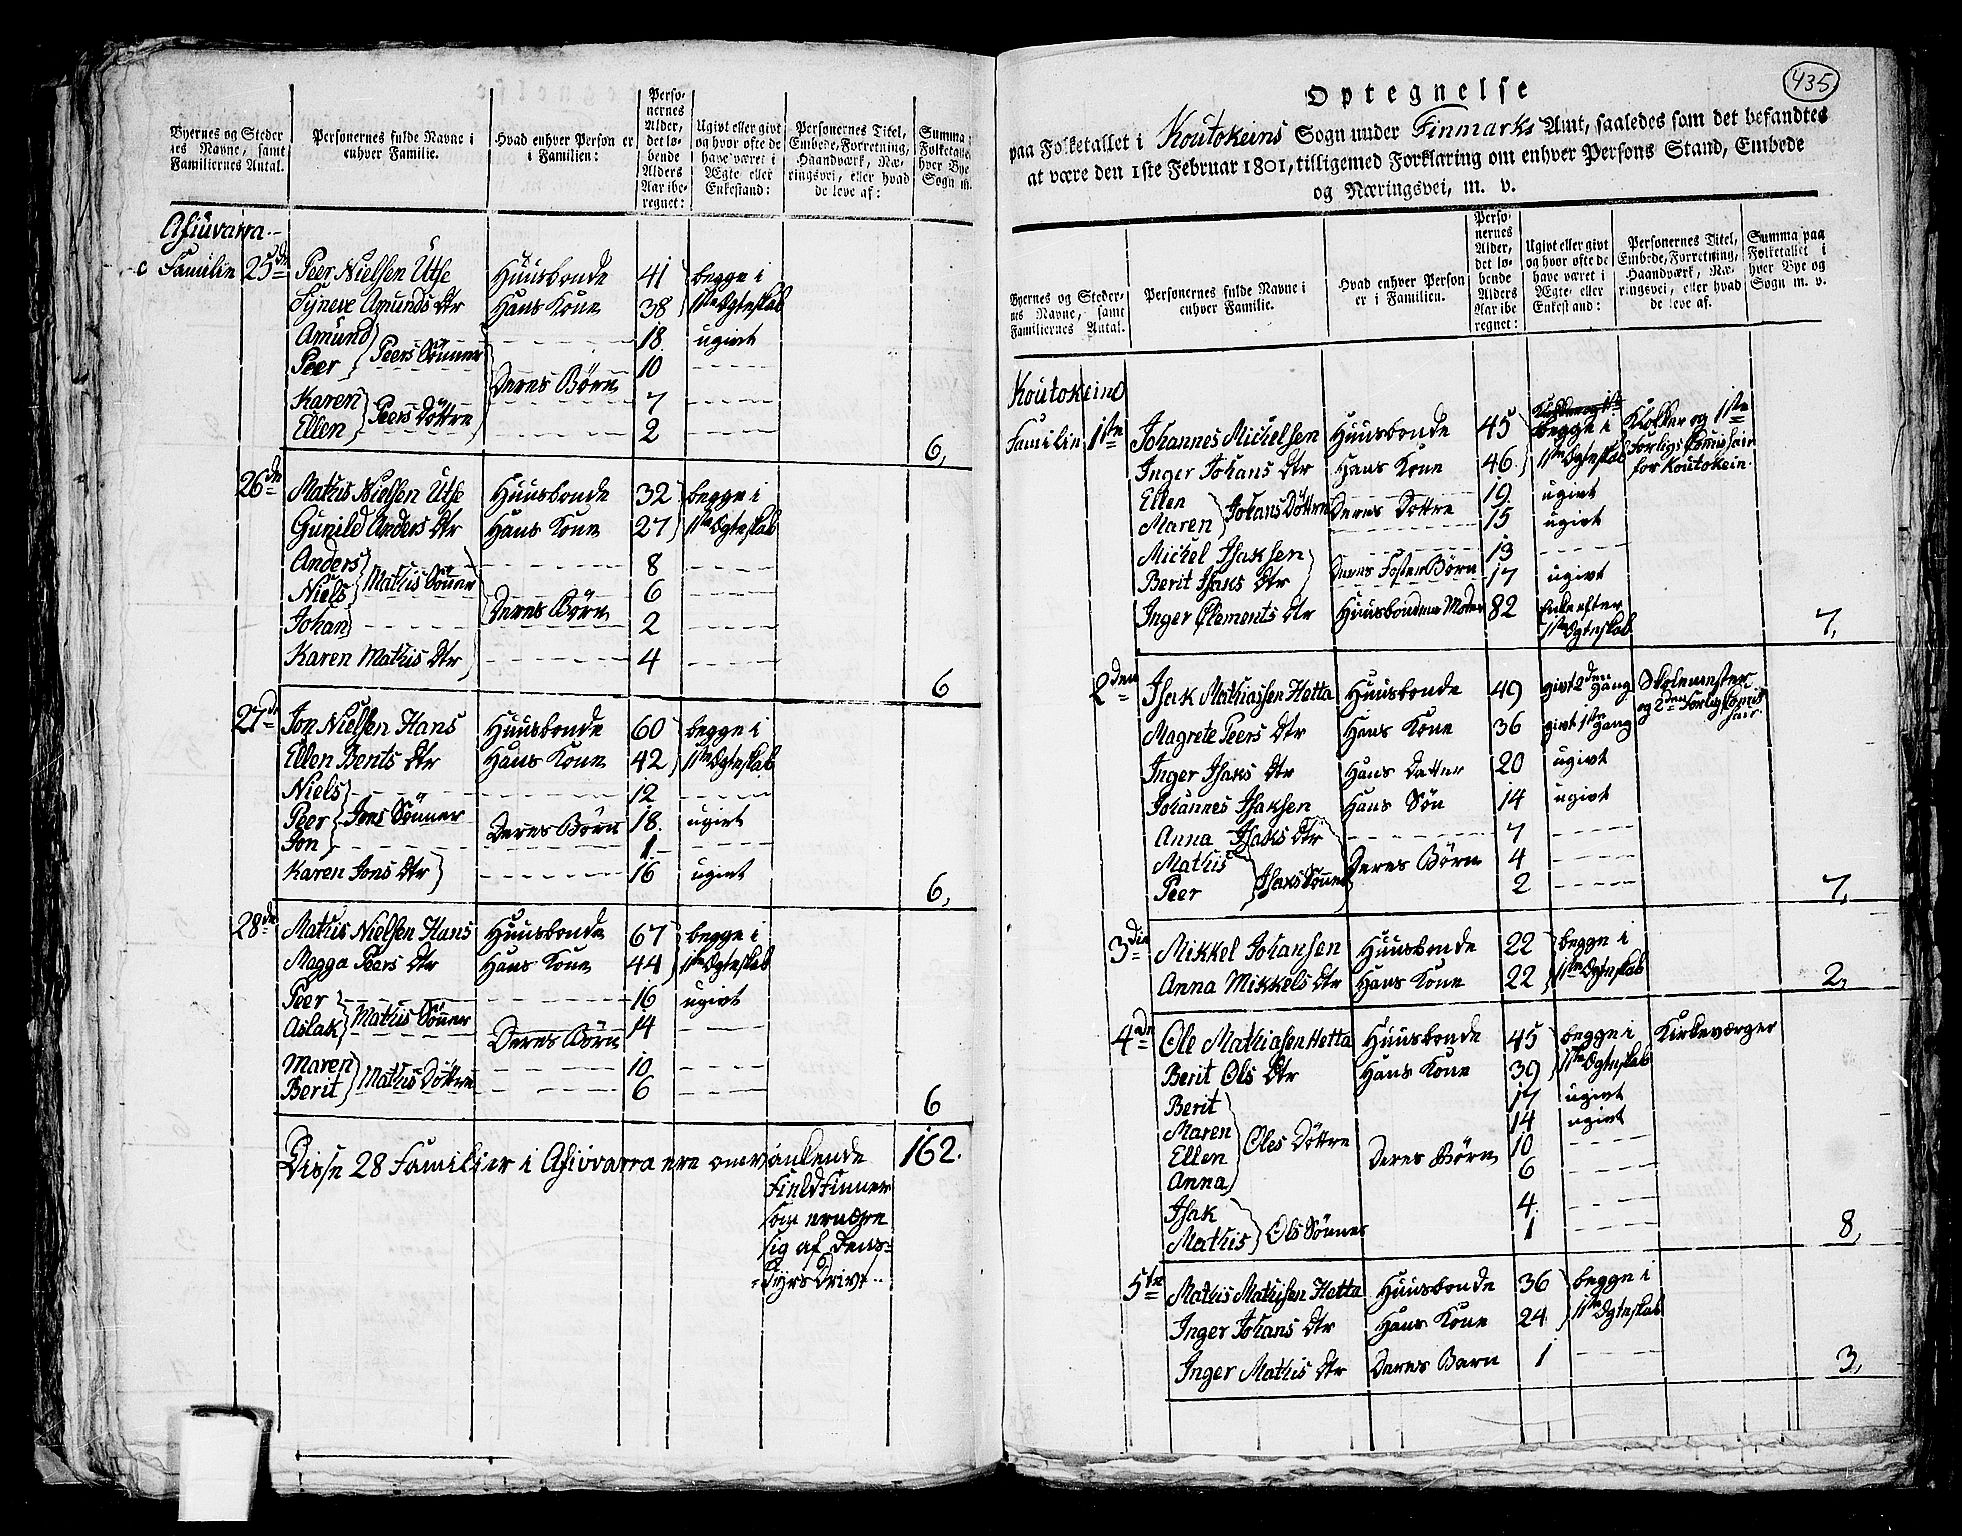 Byernes og Steder nes Navne, samt Familiernes Antal.
Personernes fulde Navne i enhver Familie.
Hvad enhver Person er i Familien:
Personernes Alder, det løbende Alders Aar iberegnet:
Ugivt eller givt og hvor ofte de have været i Ægte eller Enkestand:
Personernes Titel, Embede, Forretning, Haandværk, Næringsvei, eller hvad de leve af:
Summa Folketallet hver Bye Sogn m.
Afiuvarra
Familie 25de Peer Nielsen Utse Huusbonde 41 begge i
Syneve Amunds Dtr Hans Kone 38 1ste Ægteskab
Amund Peers Sönner 18 ugivt
Peer Deres Börn 10
Karen Peers Döttre 7
Ellen 2
6,
26de Mathis Nielsen Utse Huusbonde 32 begge i
Gunild Anders Dtr Hans Kone 27 1ste Ægteskab
Anders Mathis Sönner 8
Niels Deres Börn 6
Johan 2
Karen Mathis Dtr 4
6
27de Jon Nielsen Hans Huusbonde 60 begge i
Ellen Bents Dtr Hans Kone 42 1ste Ægteskab
Niels 12
Peer Jons Sönner Deres Börn 18 ugivt
Jon 1
Karen Jons Dtr 16 ugivt
6,
28de Mathis Nielsen Hans Huusbonde 67 begge i
Magga Peers Dtr Hans Kone 44 1ste Ægteskab
Peer 16 ugivt
Aslak Mathis Sönner Deres Börn 14
Maren 10
Berit Mathis Döttre 6
6
Disse 28 Familier i Afiuvarra ere omvankende 162.
Fieldfinner
som ernære
sig af Deres
Dyrs Drivt
435
Optegnelse
paa Folketallet i Koutokeins Sogn under Finmarks Amt, saaledes som det befandtes
at være den 1ste Februar 1801, tilligemed Forklaring om enhver Persons Stand, Embede
og Næringsvei, m. v.
Byernes og Stedernes Navne, samt Familiernes Antal.
Personernes fulde Navne i enhver Familie.
Hvad enhver Person er i Familien.
Personernes Alder, det løbende Alders Aar iberegnet:
Ugivt eller givt og hvor ofte de have været i Ægte- eller Enkestand:
Personernes Titel, Embede, Forretning, Haandværk, Næringsvei, eller hvad de leve af.
Summa paa Folketallet i hver Bye og Sogn m. v.
Koutokeino
Familie 1ste Johannes Michelsen Huusbonde 45 begge i Klokker og 1ste
Inger Johans Dtr Hans Kone 46 1ste Ægteskab Forligs Commissair
for Koutokein.
Ellen Johans Döttre Deres Dottre 19 ugivt
Maren 15 ugivt
Michel Isaksen 13
Berit Isaks Dtr Deres Foster Börn 17 ugivt
Inger Clements Dtr Huusbondens Moder 82 Enke efter
1ste Ægteskab
7,
2den Isak Mathiassen Hetta Huusbonde 49 givt 2den Gang Skolemester
Magrete Peers Dtr Hans Kone 36 givt 1ste Gang og 2den Forligs Comissair.
Inger Isaks Dtr Hans Datter 20 ugivt
Johannes Isaksen Hans Sön 14 ugivt
Anna Isaks Dtr 7
Mathis Isaks Sönner Deres Börn 4
Peer 2
7,
3die Mikkel Johansen Huusbonde 22 begge i
Anna Mikkels Dtr Hans Kone 22 1ste Ægteskab
2,
4de Ole Mathiasen Hetta Huusbonde 45 begge i Kirkeværger
Berit Ols Dtr Hans Kone 39 1ste Ægteskab
Berit 17 ugivt
Maren Oles Döttre 14 ugivt
Ellen Deres Börn 10
Anna 6
Isak 4
Mathis Ols Sönner 1
8,
5te Mathis Mathisen Hetta Huusbonde 36 begge i
Inger Johans Dtr Hans Kone 24 1ste Ægteskab
Inger Mathis Dtr Deres Barn 1
3,